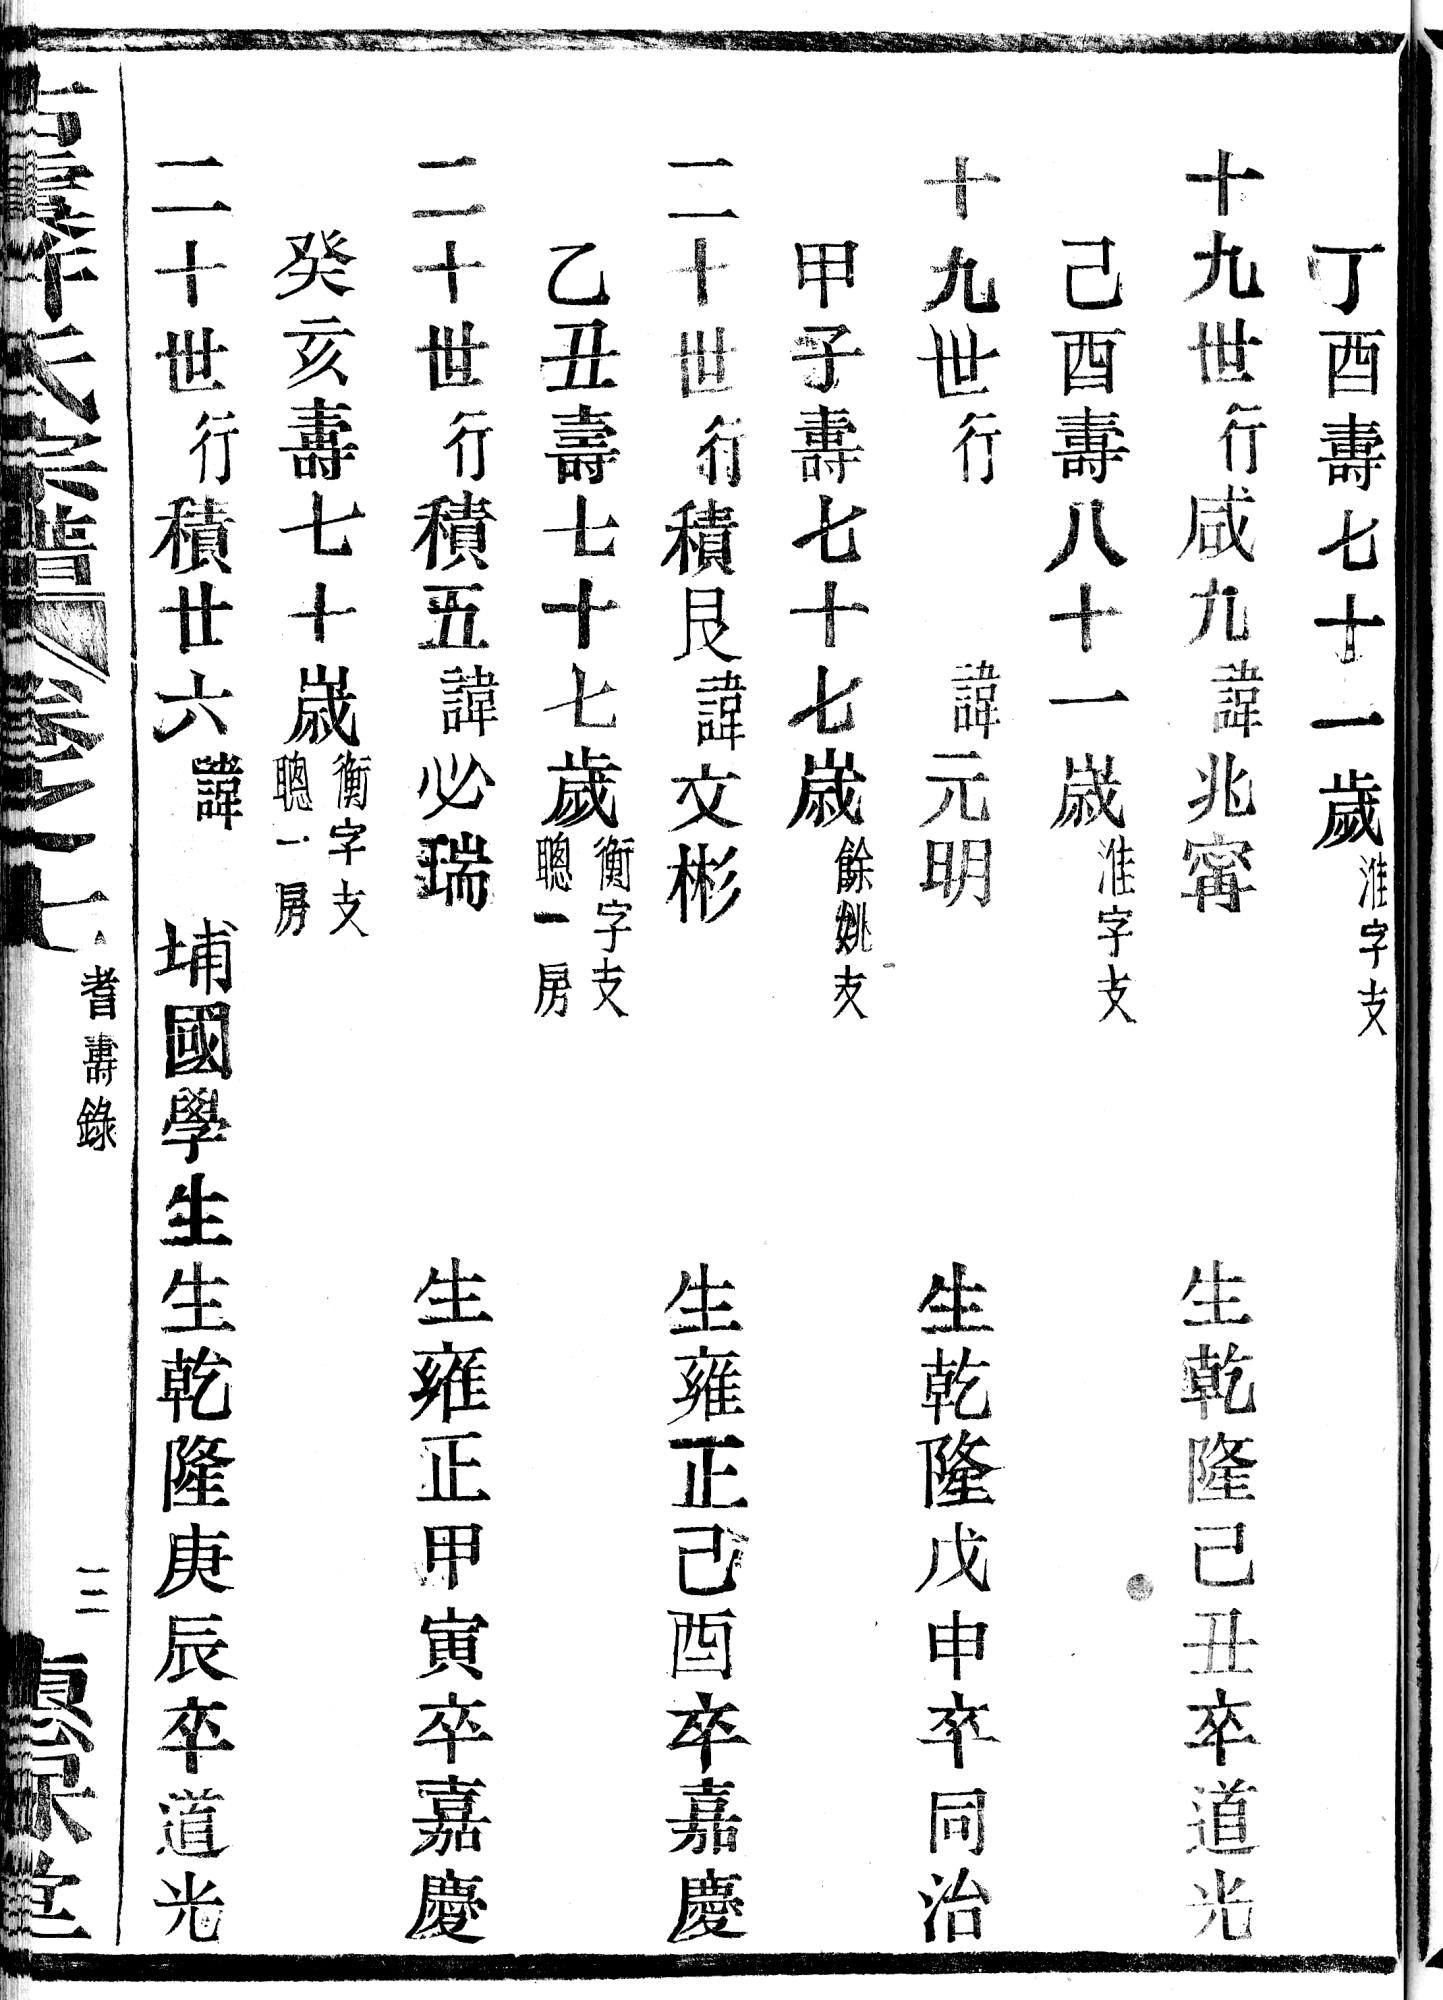 丁酉壽七十一歲淮字支
十九世行咸九諱兆甯 生乾隆己丑卒道光
己酉壽八十一歲淮字支
十九世行 諱元明 生乾隆戊申卒同治
甲子壽七十七歲餘姚支
二十世行積艮諱文彬 生雍正己酉卒嘉慶
乙丑壽七十七歲衡字支聰一房
二十世行積五諱必瑞 生雍正甲寅卒嘉慶
癸亥壽七十歲衡字支聰一房
二十世行積廿六諱 埔國學生生乾隆庚辰卒道光
氏宗譜 卷之七 耆壽錄 三 堂